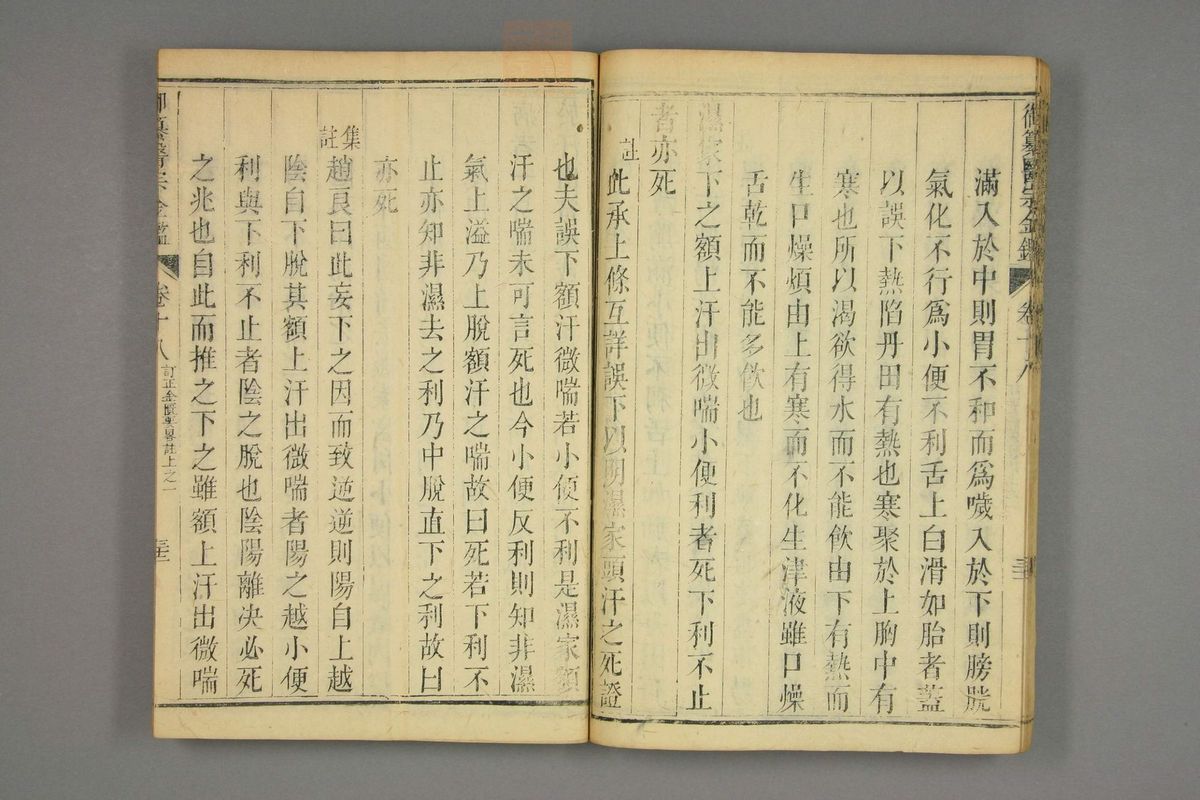 御纂醫宗金鑑 卷十八
滿入於中則胃不和而爲噦入於下則膀胱
氣化不行爲小便不利舌上白滑如胎者蓋
以誤下熱陷丹田有熱也寒聚於上胸中有
寒也所以渴欲得水而不能飲由下有熱而
生口燥煩由上有寒而不化生津液雖口燥
舌乾而不能多飲也
濕家下之額上汗出微喘小便利者死下利不止
者亦死
註此承上條互詳誤下以明濕家頭汗之死證
也夫誤下額汗微喘若小便不利是濕家額
汗之喘未可言死也今小便反利則知非濕
氣上溢乃上脫額汗之喘故曰死若下利不
止亦知非濕去之利乃中脫直下之利故曰
亦死
集註趙良曰此妄下之因而致逆逆則陽自上越
陰自下脫其額上汗出微喘者陽之越小便
利與下利不止者陰之脫也陰陽離决必死
之兆也自此而推之下之雖額上汗出微喘
御纂醫宗金鑑 卷十八 訂正金匱要畧註上之一